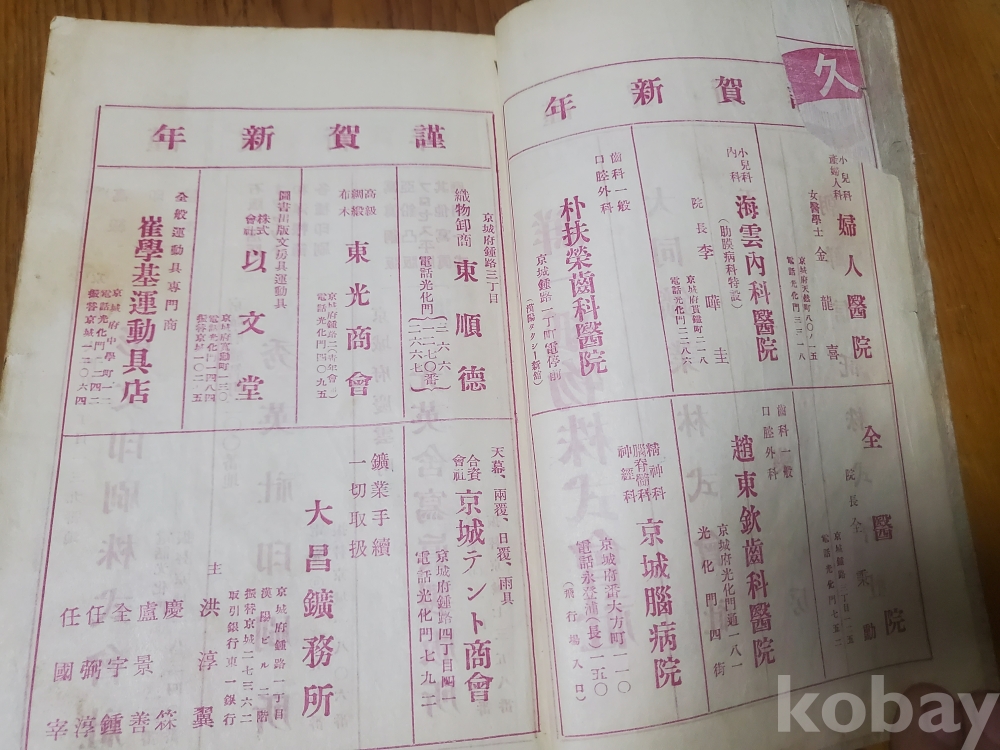 久
謹賀新年
小兒科
產婦人科
婦人醫院
女醫學士 金龍喜
小兒科
內科
海雲內科醫院
(肋膜病科特設)
院長 李曄圭
京城府貫鐵町二一八
電話光化門二二八六
齒科一般
口腔外科
朴扶榮齒科醫院
京城鍾路二丁目電停前
全醫院
院長全
齒科一般
口腔外科
趙東欽齒科醫院
京城府光化門通一八一
光化門四街
精神科
腦脊髓科
神經科
京城腦病院
京城府番大方町一一〇
電話永登浦(長)一五〇
(飛行場入口)
謹賀新年
京城府鍾路三丁目
織物卸商
東順德
電話光化門
高級
綢緞
布木
東光商會
電話光化門四〇九五
圖書出版文房具運動具
株式
會社
以文堂
京城府寬勳町一三〇
電話光化門一四八四
振替京城一〇二五
全般運動具專門商
崔學基運動具店
京城府中學町
電話光化門一二四二
振替京城一二〇六四
天幕、雨覆、日覆、雨具
合資
會社
京城テント商會
京城府鍾路四丁目四一
電話光化門七九二
鑛業手續
一切取扱
大昌鑛務所
京城府鍾路一丁目
漢陽ビル二階
振替京城二七三六二
取引銀行東一銀行
主 洪淳翼
慶秉霖
盧景善
全宇鍾
任弼淳
任國宰